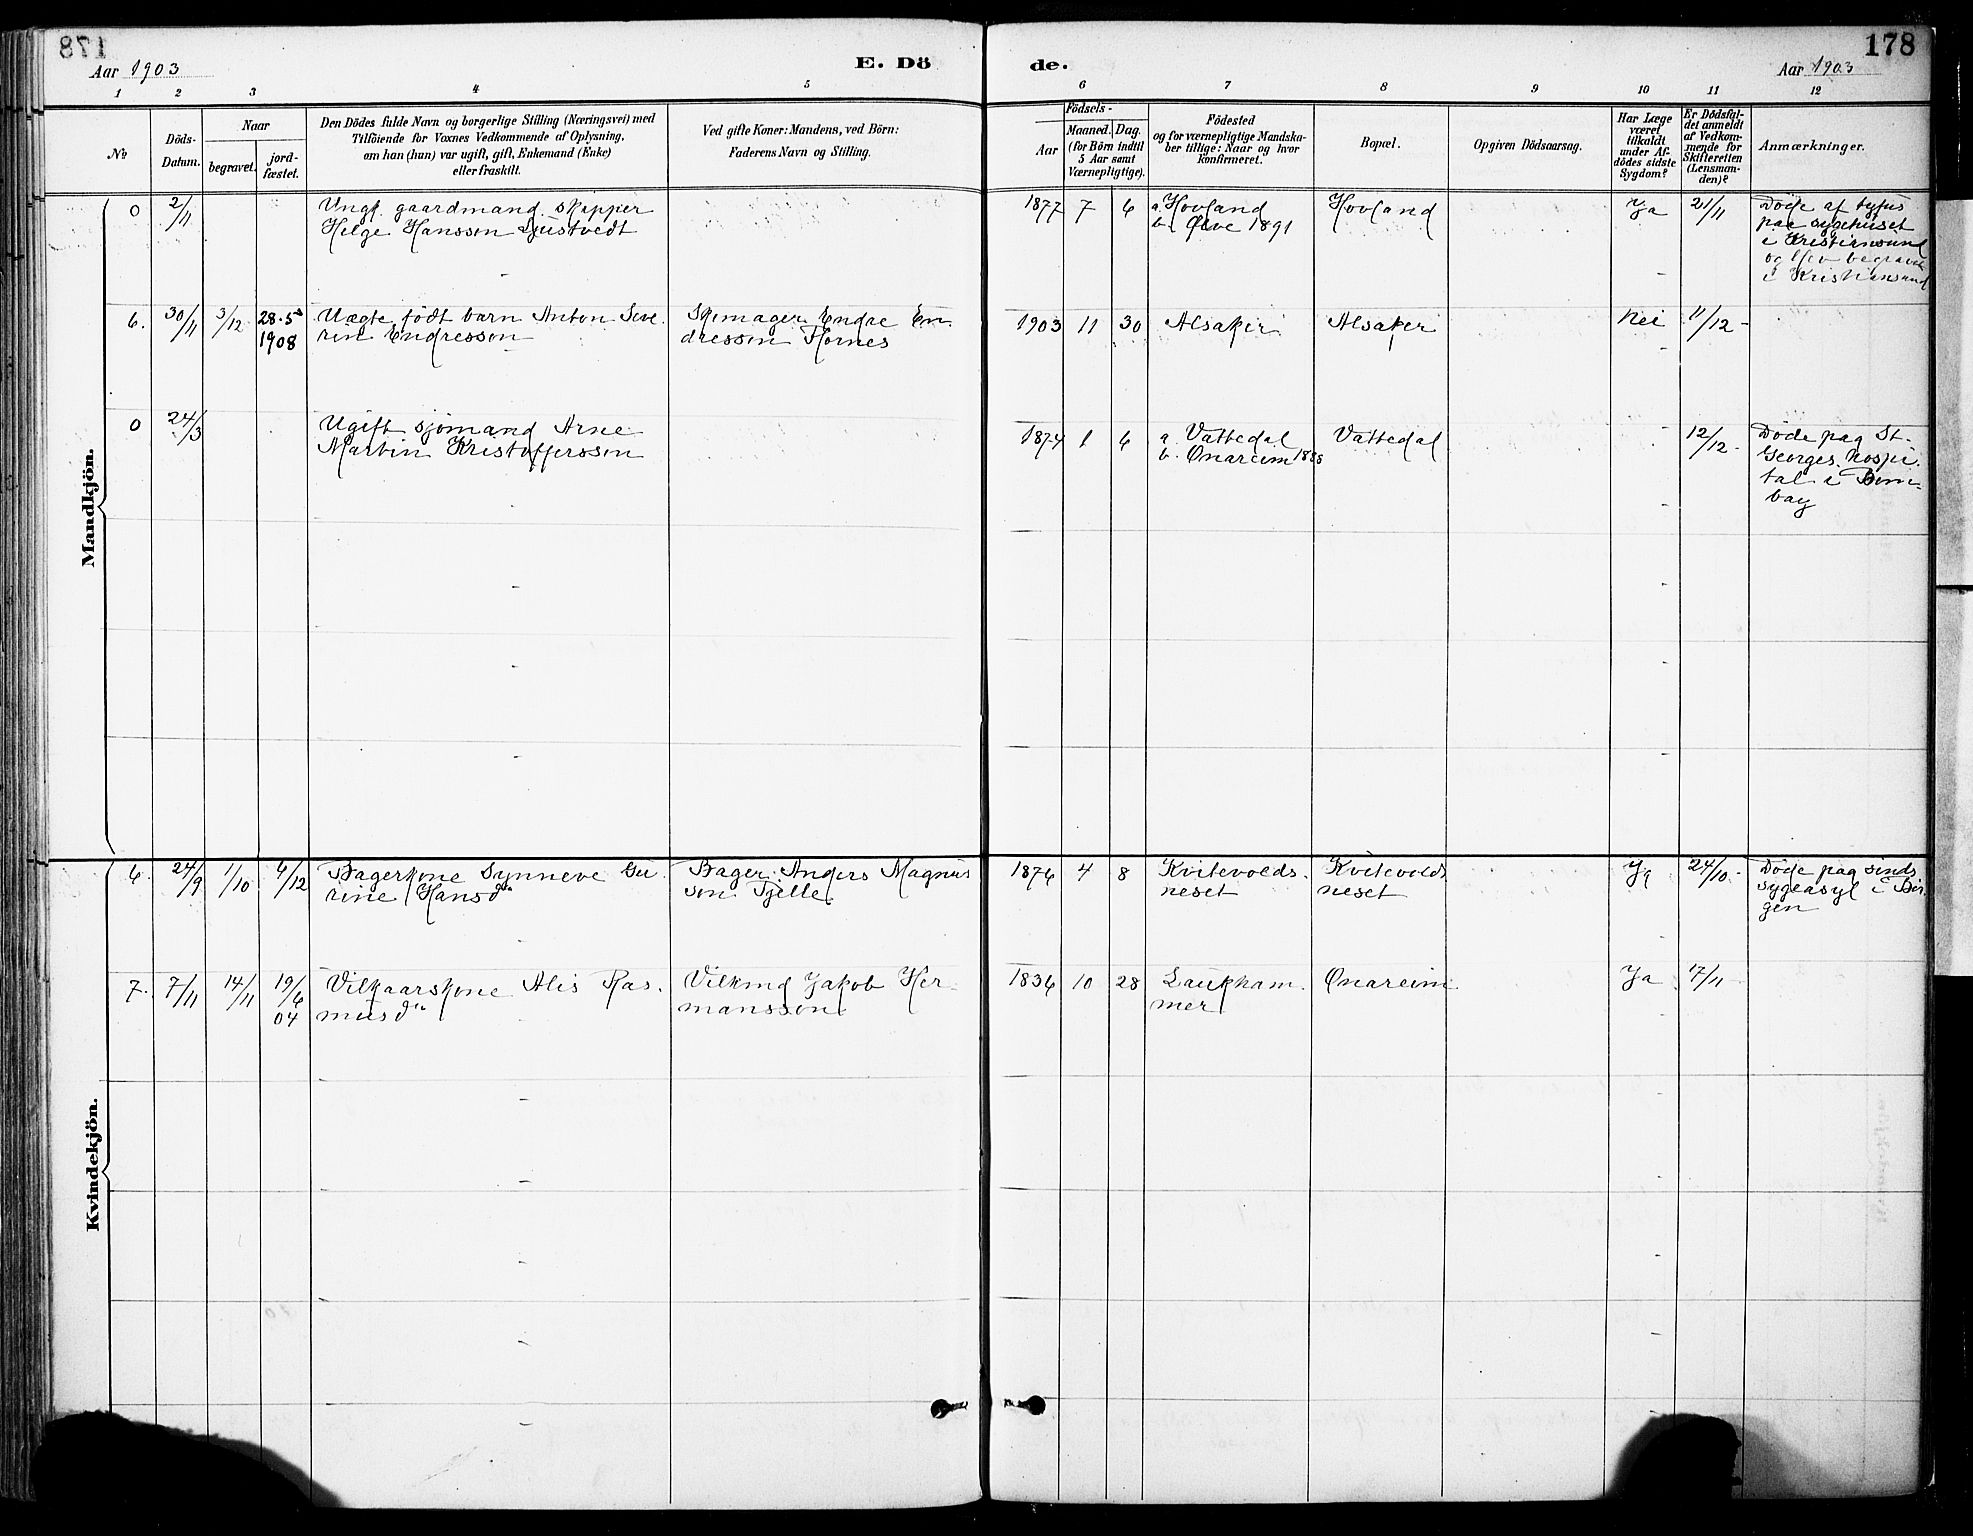 178
Aar 1903
E. Dö
de.
Aar 1903
1 2 3 4 5 6 7 8 9 10 11 12
No
Döds-
Datum.
Naar
begravet.
jord-
fæstet.
Den Dödes fulde Navn og borgerlige Stilling (Næringsvei) med
Tilföiende for Voxnes Vedkommende af Oplysning,
om han (hun) var ugift, gift, Enkemand (Enke)
eller fraskilt.
Ved gifte Koner: Mandens, ved Börn:
Faderens Navn og Stilling.
Födsels-
Aar
Maaned.
Dag.
(for Börn indtil
5 Aar samt
Værnepligtige).
Födested
og for værnepligtige Mandska-
ber tillige: Naar og hvor
konfirmeret.
Bopæl.
Opgiven Dödsaarsag.
Har Læge
været
tilkaldt
under Af-
dödes sidste
Sygdom?
Er Dödsfal-
det anmeldt
af Vedkom-
mende for
Skifteretten
(Lensman-
den)?
Anmærkninger.
Mandkjön.
0
2/11
Ungk. gaardmand skipper
Helge Hansson Ljustvedt
1877 7 6
a. Hovland
b. Ølve 1891
Hovland
Ja
21/11
Døde af tyfus
paa sygehuset
i Kristiansund
og blev begravet
i Kristiansund
6.
30/11
3/12
28.5
1908
Uægte født barn Anton Seve
rin Endresson
Skomager Endre En
dresson Hornes
1903 11 30
Alsaker
Alsaker
Nei
11/12
0
24/3
Ugift sjømand Arne
Martin Kristoffersson
1874 1 6
a. Vattedal
b. Onareim 1888
Vattedal
12/12
Døde paa St.
Georges hospi
tal i Bom
bay
Kvindekjön.
6.
24/9
1/10
6/12
Bagerkone Synneve Gu
rine Hansdtr
Bager Anders Magnus
son Tjelle
1876 4 8
Kvitevolds
neset
Kvitevolds
neset
Ja
24/10
Døde paa sinds
sygeasyl i Ber
gen
7.
7/11
14/11
19/6
04
Vilkaarskone Alis Ras
musdtr
Vilkmd Jakob Her
mansson
1836 10 28
Laukham
mer
Onareim
Ja
17/11